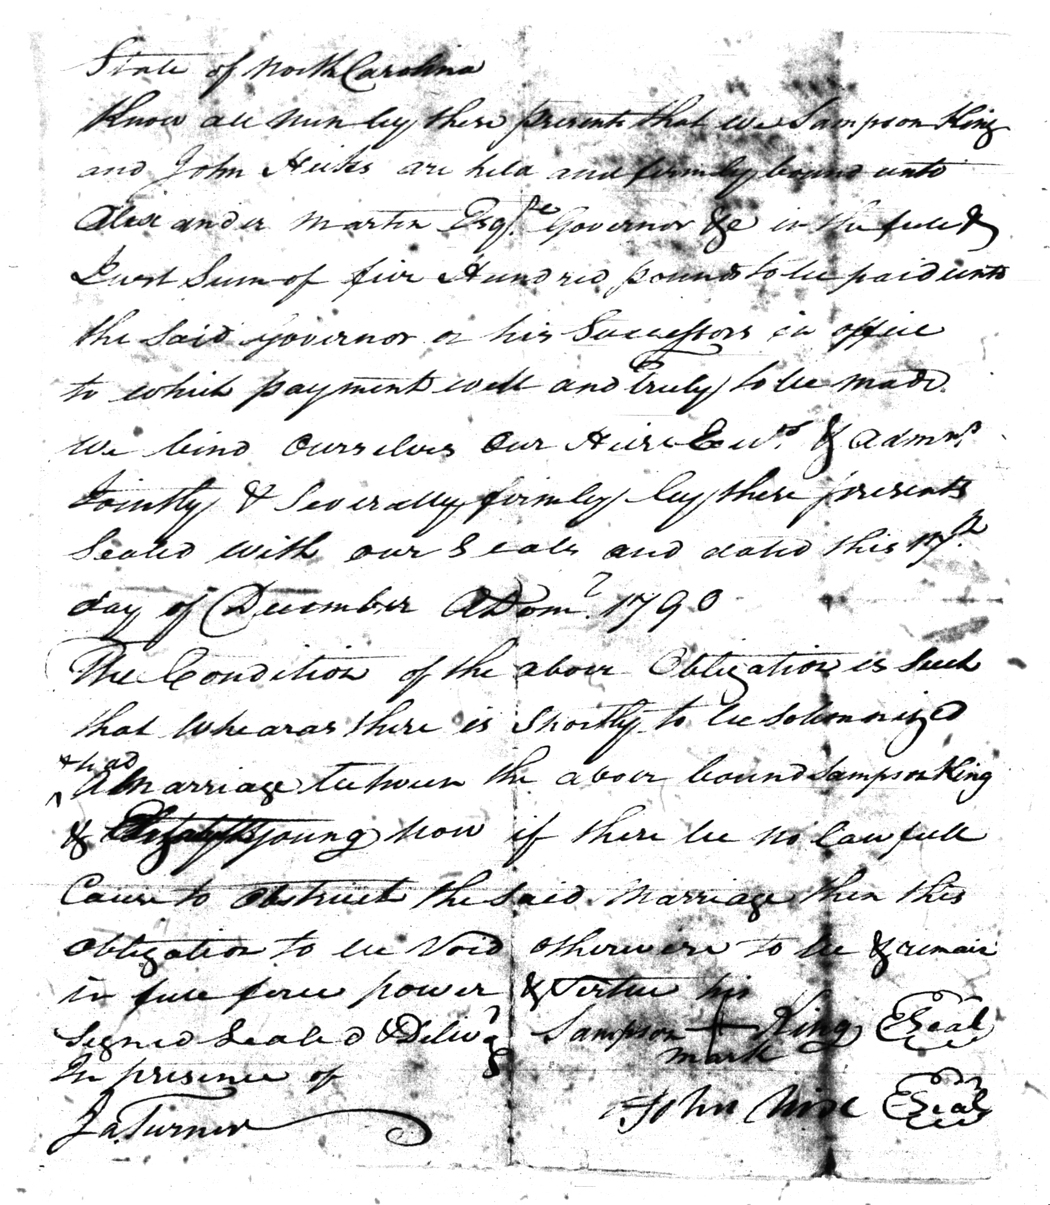 State of North Carolina
Know all men by these presents that we Sampson King
and John Hicks are held and firmly bound unto
Alexander Martin Esqr. Governor &c in the full &
Just Sum of five Hundred pounds to be paid unto
the Said Governor or his Successors in office
to which payment well and Truly to be made
We bind Ourselves Our Heirs Exrs. & Admrs.
Jointly & Severally firmly by these presents
Sealed with our Seals and dated this 17th
day of December ADom. 1790
The Condition of the above Obligation is Such
that Whearas there is Shortly to be Solomnized
A Marriage between the above bound Sampson King
& Young Now if there be no lawfull
Cause to Obstruct the Said Marriage then this
Obligation to be Void otherwise to be & remain
in full force power & Virtue his
Signed Sealed & Delivd Sampson + King Seal
mark
In presence of
John Seal
Ja. Turner